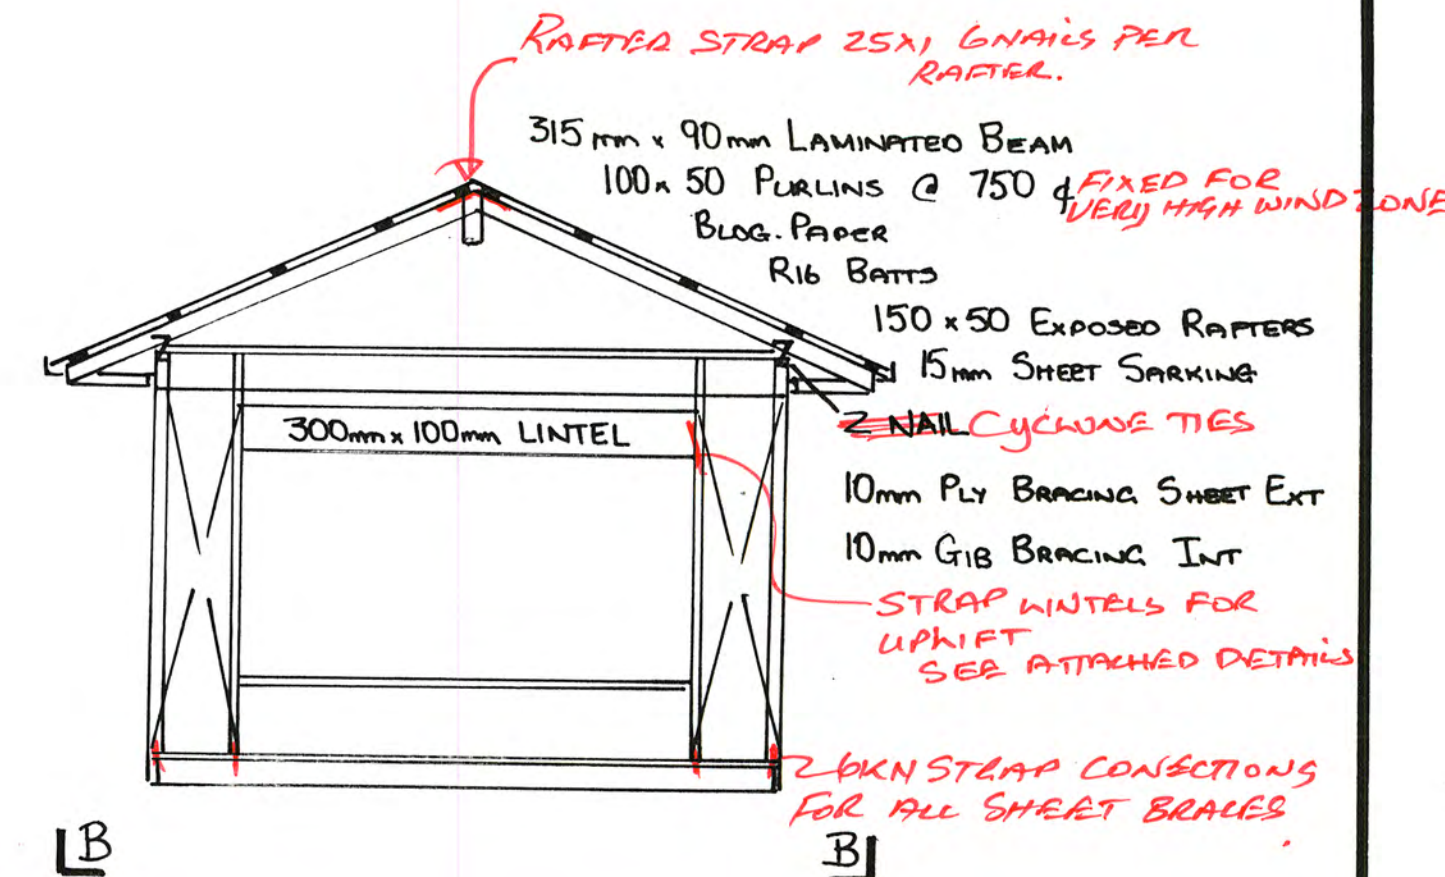 RAFTER STRAP 25x1, 6 NAILS PER
RAFTER.
315mm x 90mm LAMINATED BEAM
100x50 PURLINS @ 750 ¢ FIXED FOR
VERY HIGH WIND ZONE
BLDG. PAPER
R16 BATTS
150 x 50 EXPOSED RAFTERS
15mm SHEET SARKING
Z NAIL CYCLONE TIES
300mm x 100mm LINTEL
10mm PLY BRACING SHEET EXT
10mm GIB BRACING INT
STRAP LINTELS FOR
UPLIFT
SEE ATTACHED DETAILS
6KN STRAP CONECTIONS
FOR ALL SHEET BRACES
B B